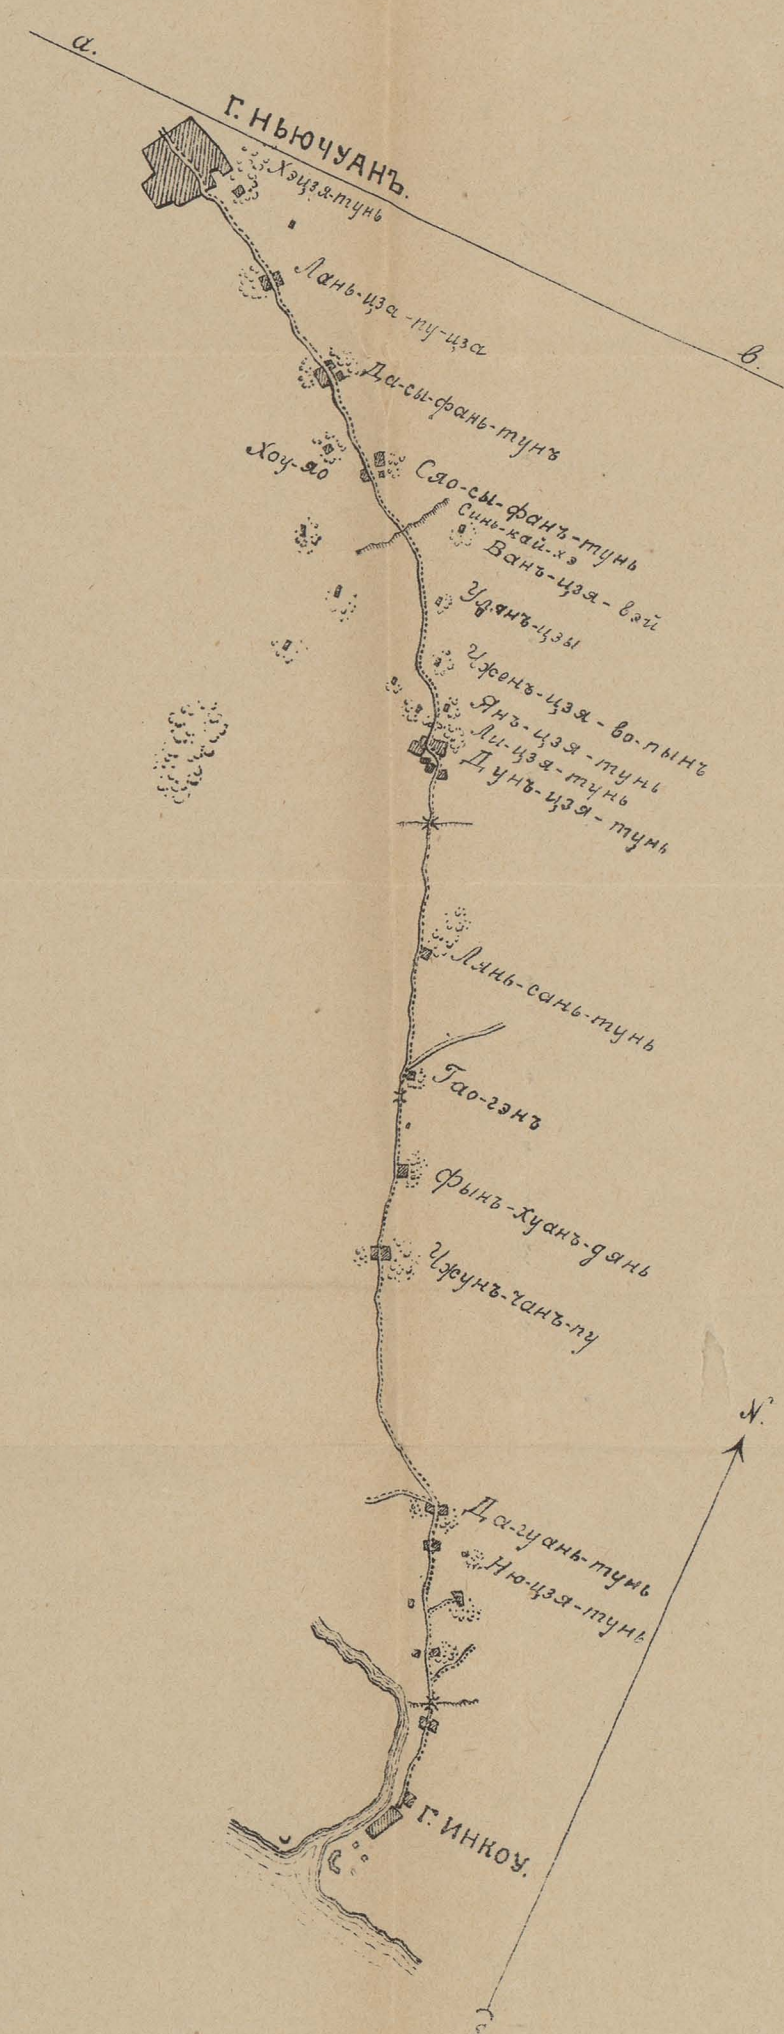 а.
Г. НЬЮЧУАНЪ.
Хэцзя-тунь
Лань-цза-пу-цза
в.
Да-сы-фань-тунъ
Хоу-яо
Сяо-сы-фанъ-тунь
Синь-кай-хэ
Ванъ-цзя-вэй
Улянъ-цзы
Чженъ-цзя-во-пынъ
Янъ-цзя-тунь
Ли-цзя-тунь
Дунъ-цзя-тунь
Лянь-сань-тунь
Гао-гэнъ
Фынъ-хуанъ-дянь
Чжунъ-чанъ-пу
N.
Да-гуань-тунь
Ню-цзя-тунь
Г. ИНКОУ.